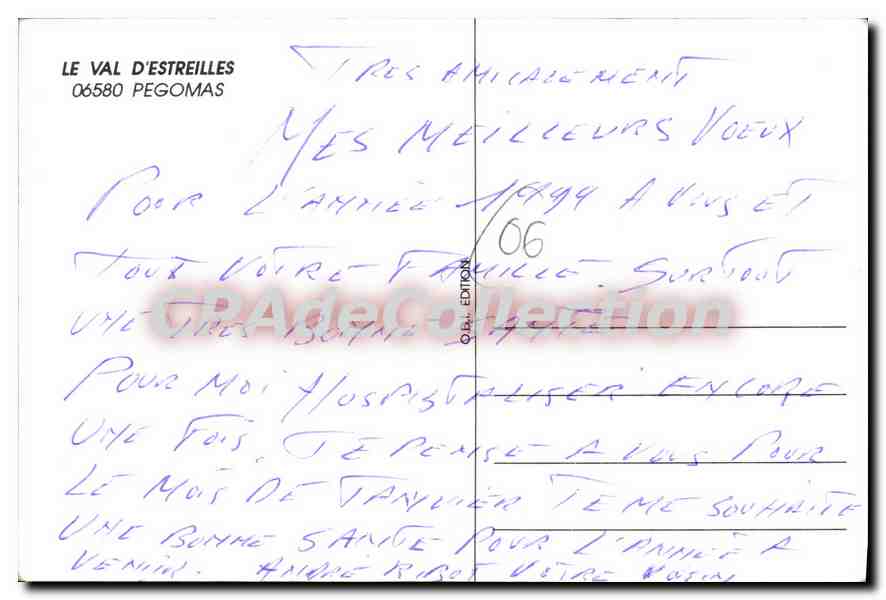 LE VAL D'ESTREILLES
06580 PEGOMAS
TRES AMICALEMENT
MES MEILLEURS VOEUX
POUR L'ANNÉE 1999 A VOUS ET
06
TOUT VOTRE FAMILLE. SURTOUT
O.B.I. EDITION
CPAdeCollection
UNE TRES BONNE SANTÉ
POUR MOI HOSPISTALISER ENCORE
UNE FOIS. JE PENSE A VOUS POUR
LE MOIS DE JANVIER JE ME SOUHAITE
UNE BONNE SANTE POUR L'ANNEE A
VENIR. ANDRÉ RIBOT VOTRE VOISIN